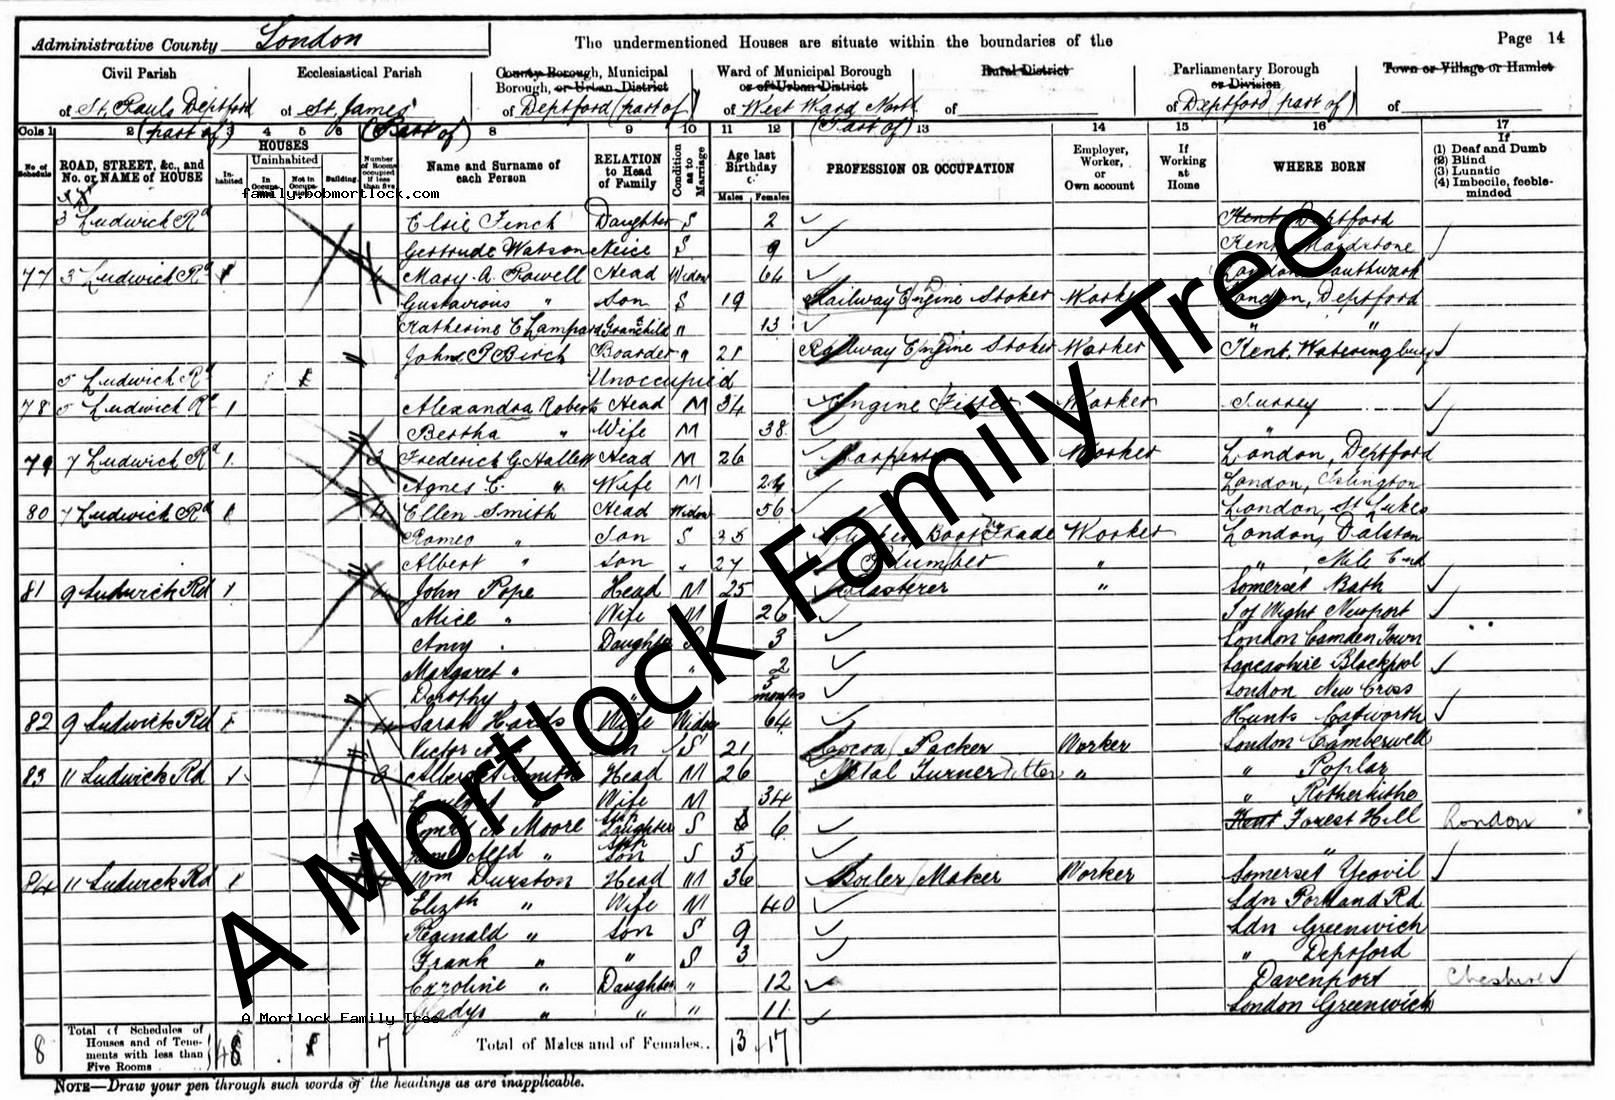 Administrative County London The undermentioned Houses are situate within the boundaries of the Page 14
Civil Parish Ecclesiastical Parish County Borough, Municipal Borough, or Urban District Ward of Municipal Borough or of Urban District Rural District Parliamentary Borough or Division Town or Village or Hamlet
of St. Pauls Deptford (part of) of St. James (Part of) of Deptford (part of) of West Ward North (Part of) of of Deptford (part of) of
Cols 1 2 3 4 5 6 8 9 10 11 12 13 14 15 16 17
No. of Schedule ROAD, STREET, &c., and No. or NAME of HOUSE HOUSES Inhabited Uninhabited In Occupa- Not in Occupa- Building Number of Rooms occupied if less than five Name and Surname of each Person RELATION to Head of Family Condition as to Marriage Age last Birthday Males Females PROFESSION OR OCCUPATION Employer, Worker, or Own account If Working at Home WHERE BORN If (1) Deaf and Dumb (2) Blind (3) Lunatic (4) Imbecile, feeble-minded
family.bobmortlock.com
3 Ludwick Rd Elsie Finch Daughter S 2 Kent Deptford
Gertrude Watson Neice S 9 Kent Maidstone
77 3 Ludwick Rd 1 4 Mary A. Powell Head Widow 64 London Southwark
Gustavious " Son S 19 Railway Engine Stoker Worker London, Deptford
Katherine E Lampard Grandchild " 13 " "
John P Birch Boarder " 21 Railway Engine Stoker Worker Kent, Wateringbury
5 Ludwick Rd 1 Unoccupied
78 5 Ludwick Rd 1 Alexandra Roberts Head M 34 Engine Fitter Worker Surrey
Bertha " Wife M 38 "
79 7 Ludwick Rd 1 3 Frederick G. Hallett Head M 26 Carpenter Worker London, Deptford
Agnes E. " Wife M 24 London, Islington
80 7 Ludwick Rd 1 4 Ellen Smith Head Widow 56 London, St Lukes
Romeo " Son S 35 Boot Trade Worker London, Dalston
Albert " Son " 27 Plumber " " Mile End
81 9 Ludwick Rd 1 4 John Pope Head M 25 Plasterer " Somerset Bath
Alice " Wife M 26 I of Wight Newport
Amy " Daughter S 3 London Camden Town
Margaret " " 2 Lancashire Blackpool
Dorothy " 5 months London New Cross
82 9 Ludwick Rd 1 4 Sarah Hards Wife Widow 64 Hunts Catworth
Victor Son S 21 Cocoa Packer Worker London Camberwell
83 11 Ludwick Rd 1 3 Albert Smith Head M 26 Metal Turner Fitter " " Poplar
Wife M 34 " Rotherhithe
A Moore Step Daughter S 6 Kent Forest Hill London
James Alfd " Step Son S 5 "
84 11 Ludwick Rd 1 4 Wm Durston Head M 36 Boiler Maker Worker Somerset Yeovil
Elizth " Wife M 40 Ldn Portland Rd
Reginald " Son S 9 Ldn Greenwich
Frank " " S 3 " Deptford
Caroline " Daughter " 12 Davenport Cheshire
Gladys " " " 11 London Greenwich
A Mortlock Family Tree
8 Total of Schedules of Houses and of Tenements with less than Five Rooms 8 1 7 Total of Males and of Females.. 13 17
NOTE—Draw your pen through such words of the headings as are inapplicable.
A Mortlock Family Tree